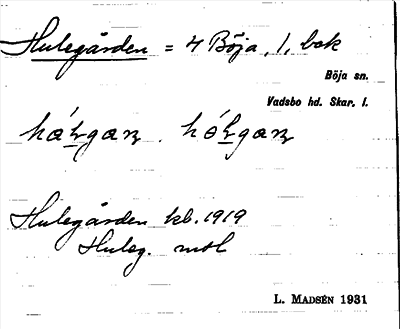 Hulegården = 4 Böja, 1, bok
Böja sn.
Vadsbo hd. Skar. l.
Hulegården kb. 1919
Huleg. mtl
L. MADSÉN 1931